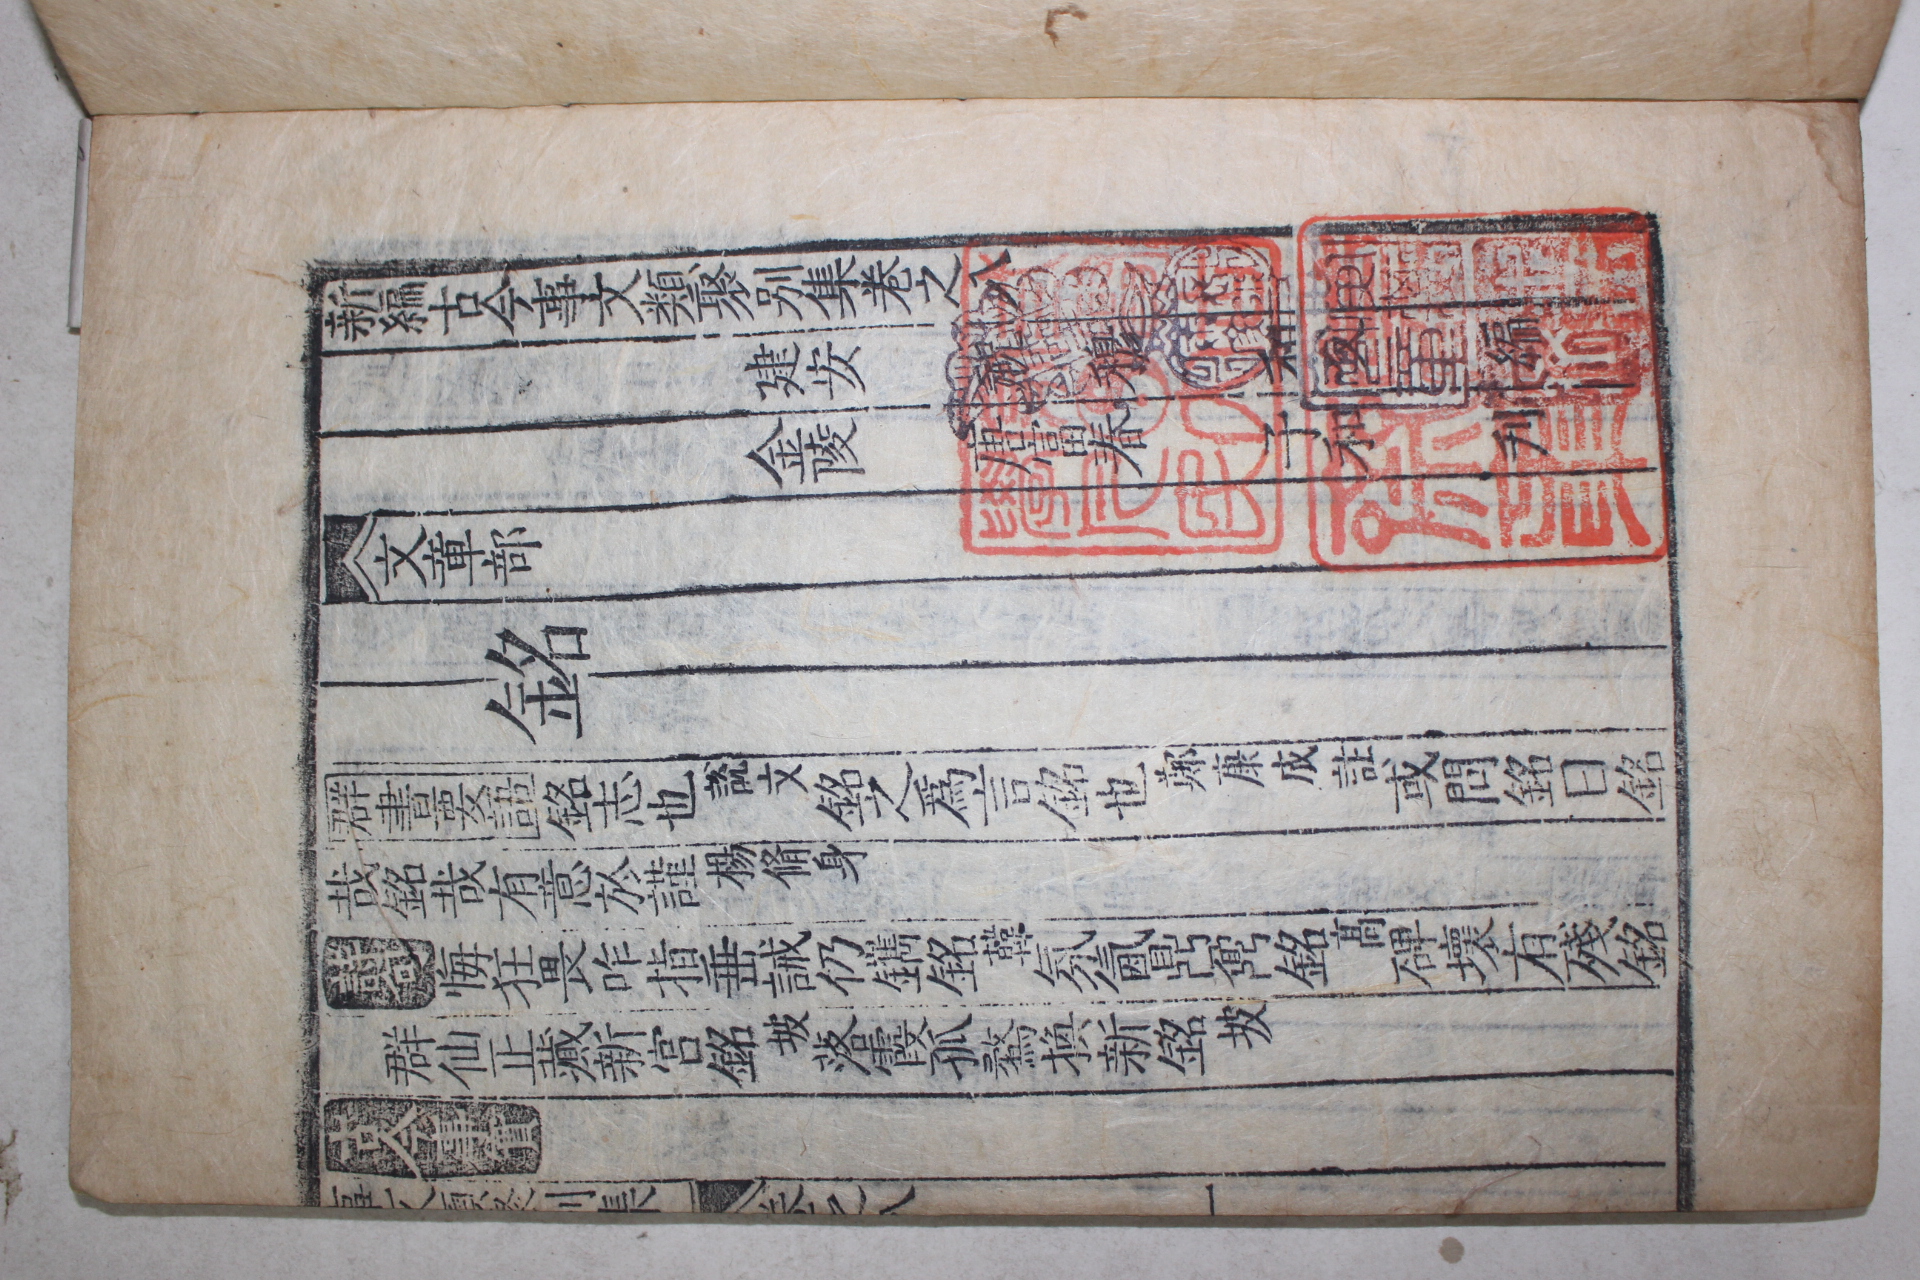 新編古今事文類聚別集卷之八
建安 祝 穆 和 編
金陵 唐富春 子和 刋
文章部
銘
群書要語銘志也說文銘之爲言銘也鄭康成註或問銘曰銘
哉銘哉有意於謹楊脩身
詩句悔狂畏咋指垂誡仍鐫銘韓氛氳鼎鼐銘高碑壞有殘銘
群仙正藏新宮銘坡落霞孤鶩換新銘坡
古今事實
事文類聚別集 卷之八 一